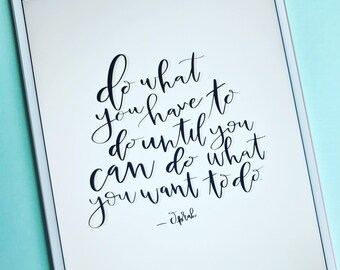 do what
you have to
do until you
can do what
you want to do
— Oprah